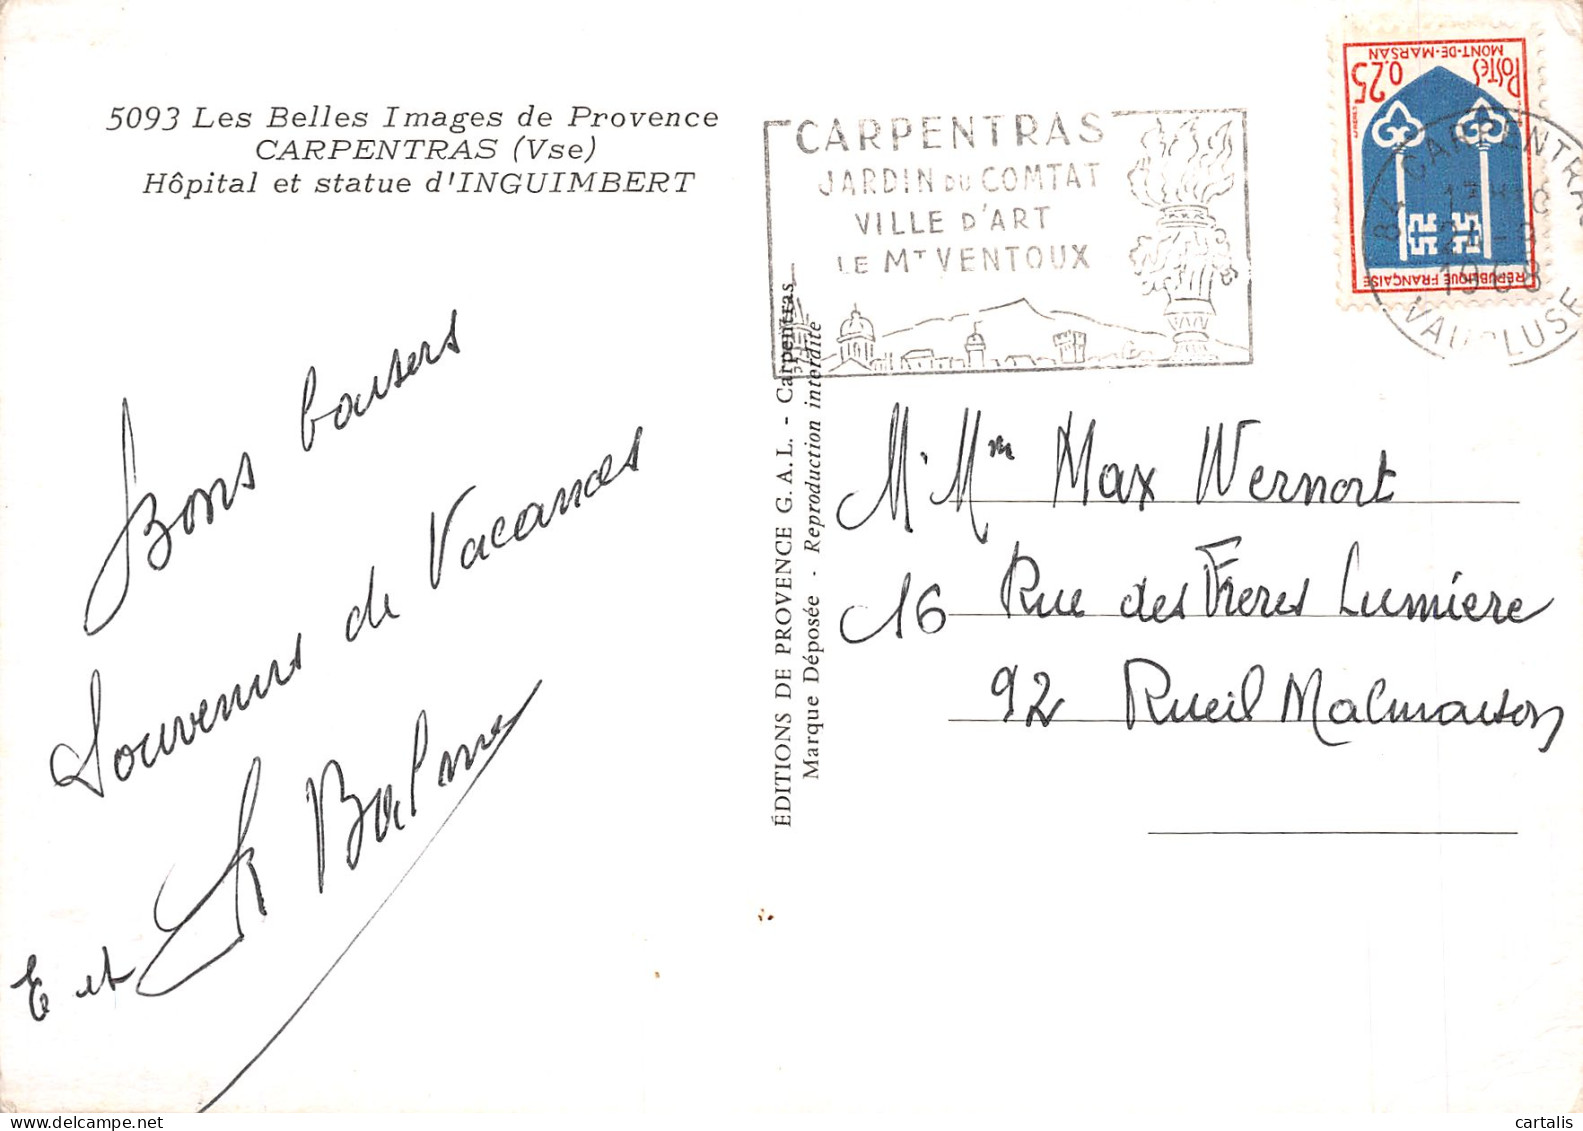 5093 Les Belles Images de Provence
CARPENTRAS (Vse)
Hôpital et statue d'INGUIMBERT
Bons baisers
Souvenirs de Vacances
E et
ÉDITIONS DE PROVENCE G.A.L. - Carpentras
Marque Déposée - Reproduction interdite
CARPENTRAS
JARDIN DU COMTAT
VILLE D'ART
LE MT VENTOUX
POSTES 0,25
MONT-DE-MARSAN
RÉPUBLIQUE FRANÇAISE
84 CARPENTRAS
1968
VAUCLUSE
M. Mme Max Wernort
16 Rue des Freres Lumiere
92 Rueil Malmaison
cartalis